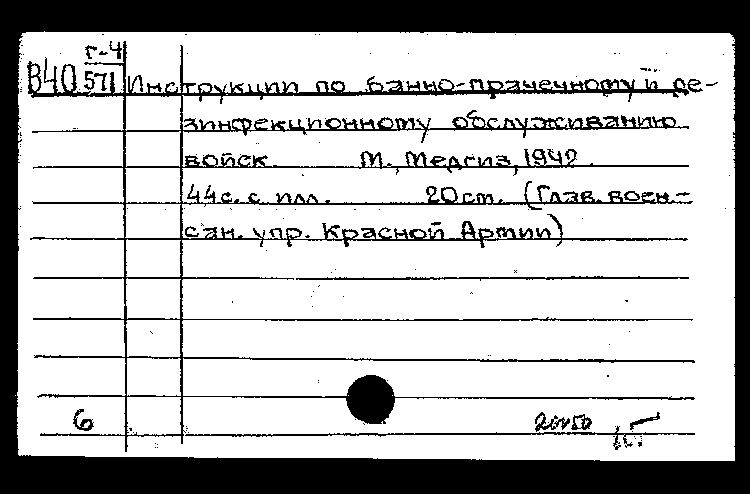 Г-4
В40 571 Инструкции по банно-прачечному и де-
зинфекционному обслуживанию
войск. М., Медгиз, 1942.
44с. с илл. 20см. (Глав. воен.-
сан. упр. Красной Армии)
6